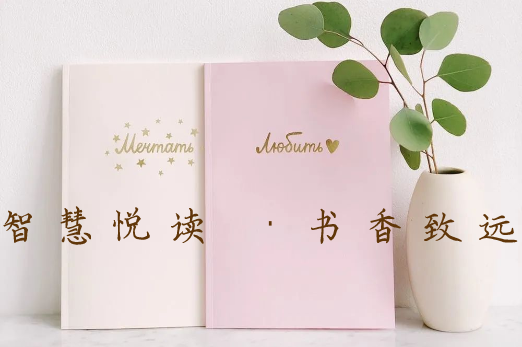 Мечтать
Любить
智慧悦读 · 书香致远